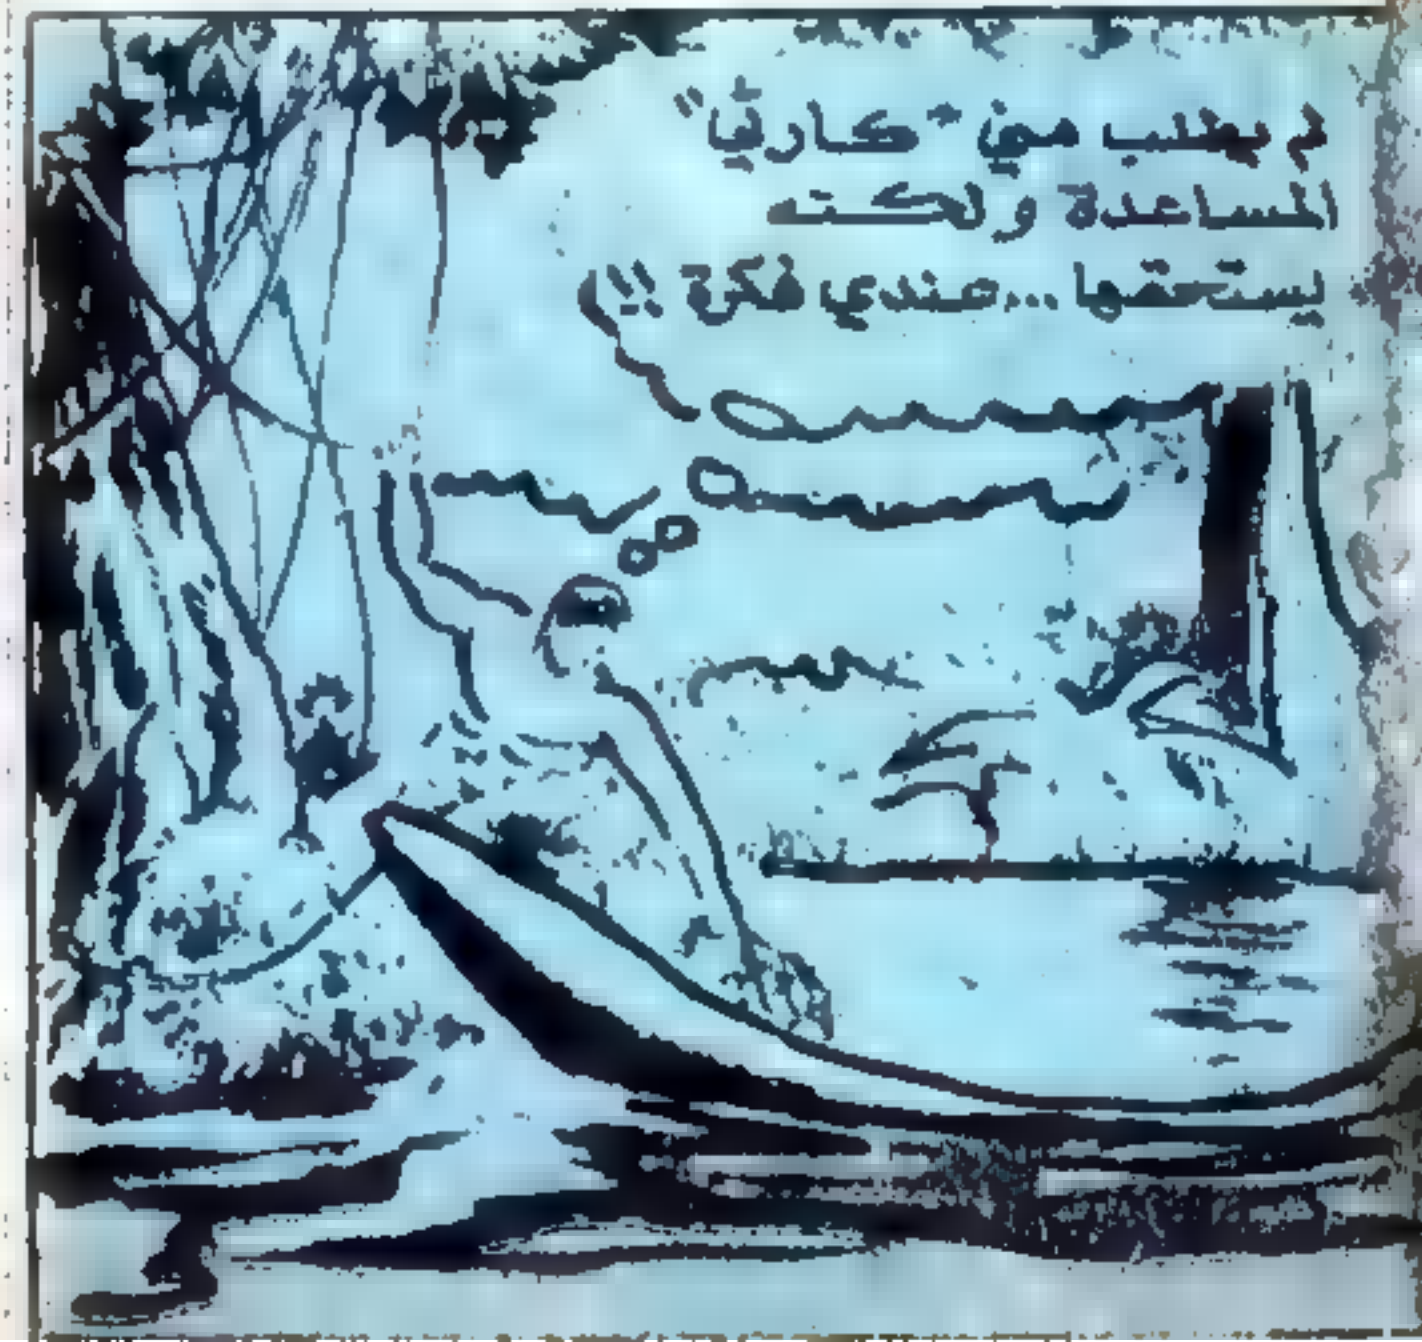 لم يطلب مني "كارتي"
المساعدة ولكنه
يستحقها...عندي فكرة !!